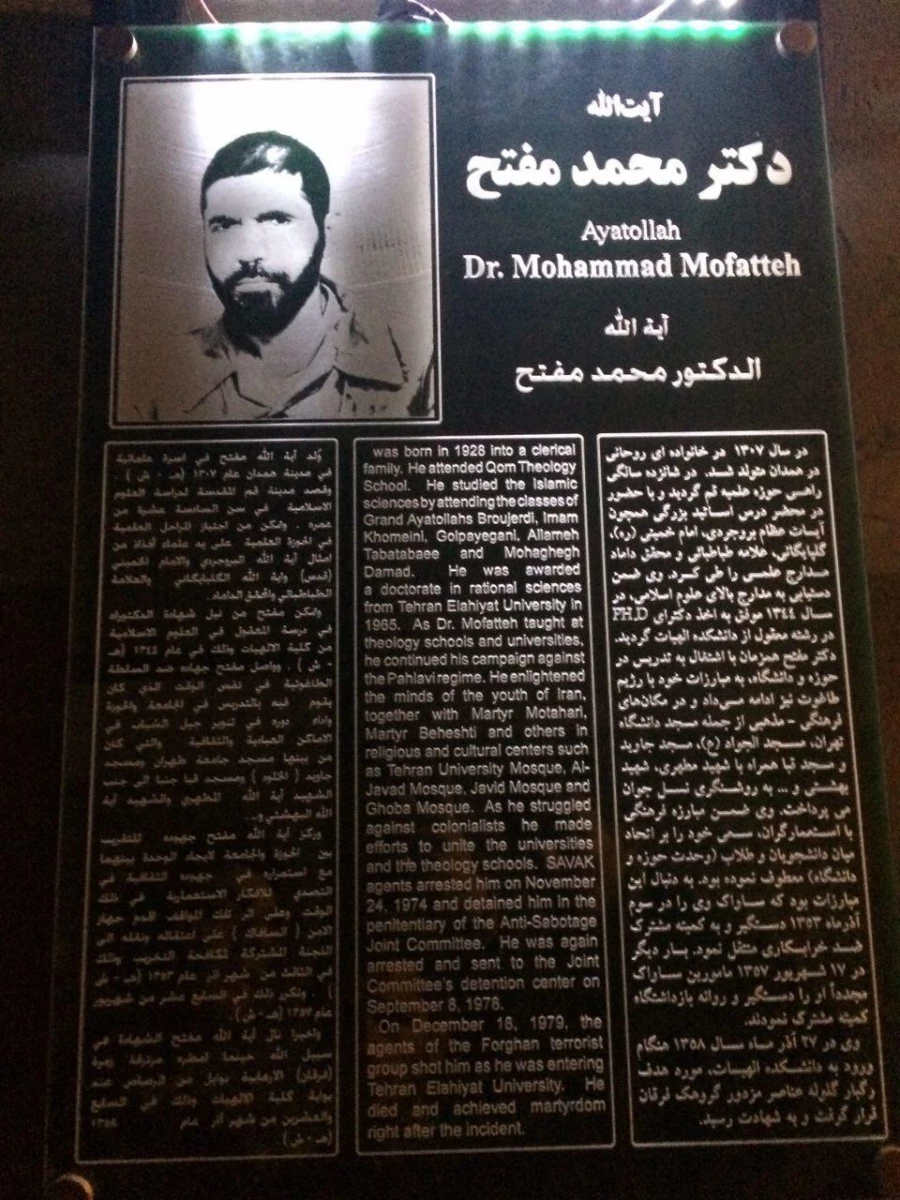 آیت‌الله
دکتر محمد مفتح
Ayatollah
Dr. Mohammad Mofatteh
آية الله
الدكتور محمد مفتح
در سال ۱۳۰۷ در خانواده ای روحانی
در همدان متولد شد. در شانزده سالگی
راهی حوزه علمیه قم گردید و با حضور
در محضر درس اساتید بزرگی همچون
آیات عظام بروجردی، امام خمینی (ره)،
گلپایگانی، علامه طباطبائی و محقق داماد
مدارج علمی را طی کرد. وی ضمن
دستیابی به مدارج بالای علوم اسلامی، در
سال ۱۳۴۴ موفق به اخذ دکترای PH.D
در رشته معقول از دانشکده الهیات گردید.
دکتر مفتح همزمان با اشتغال به تدریس در
حوزه و دانشگاه، به مبارزات خود با رژیم
طاغوت نیز ادامه می‌داد و در مکان‌های
فرهنگی - مذهبی از جمله مسجد دانشگاه
تهران، مسجد الجواد (ع)، مسجد جاوید
و مسجد قبا همراه با شهید مطهری، شهید
بهشتی و ... به روشنگری نسل جوان
می پرداخت. وی ضمن مبارزه فرهنگی
با استعمارگران، سعی خود را بر اتحاد
میان دانشجویان و طلاب (وحدت حوزه و
دانشگاه) معطوف نموده بود. به دنبال این
مبارزات بود که ساواک وی را در سوم
آذرماه ۱۳۵۳ دستگیر و به کمیته مشترک
ضد خرابکاری منتقل نمود. بار دیگر
در ۱۷ شهریور ۱۳۵۷ مامورین ساواک
مجدداً او را دستگیر و روانه بازداشتگاه
کمیته مشترک نمودند.
وی در ۲۷ آذر ماه سال ۱۳۵۸ هنگام
ورود به دانشکده الهیات، مورد هدف
رگبار گلوله عناصر مزدور گروهک فرقان
قرار گرفت و به شهادت رسید.
was born in 1928 into a clerical
family. He attended Qom Theology
School. He studied the Islamic
sciences by attending the classes of
Grand Ayatollahs Broujerdi, Imam
Khomeini, Golpayegani, Allameh
Tabatabaee and Mohaghegh
Damad. He was awarded
a doctorate in rational sciences
from Tehran Elahiyat University in
1965. As Dr. Mofatteh taught at
theology schools and universities,
he continued his campaign against
the Pahlavi regime. He enlightened
the minds of the youth of Iran,
together with Martyr Motahari,
Martyr Beheshti and others in
religious and cultural centers such
as Tehran University Mosque, Al-
Javad Mosque, Javid Mosque and
Ghoba Mosque. As he struggled
against colonialists he made
efforts to unite the universities
and the theology schools. SAVAK
agents arrested him on November
24, 1974 and detained him in the
penitentiary of the Anti-Sabotage
Joint Committee. He was again
arrested and sent to the Joint
Committee's detention center on
September 8, 1978.
On December 18, 1979, the
agents of the Forghan terrorist
group shot him as he was entering
Tehran Elahiyat University. He
died and achieved martyrdom
right after the incident.
ولد آية الله مفتح في اسرة علمائية
في مدينة همدان عام ۱۳۰۷ (هـ - ش) .
وقصد مدينة قم المقدسة لدراسة العلوم
الاسلامية في سن السادسة عشرة من
عمره . وتمكن من اجتياز المراحل العلمية
في الحوزة العلمية على يد علماء أفذاذ من
امثال آية الله البروجردي والامام الخميني
(قدس) وآية الله الگلبايگاني والعلامة
الطباطبائي والمحقق الداماد.
وتمكن مفتح من نيل شهادة الدكتوراه
في من العلوم الاسلامية
من كلية الالهيات وذلك في عام ۱۳٤٤ (هـ
- ش) . وواصل مفتح جهاده ضد السلطة
الطاغوتية في نفس الوقت الذي كان
يقوم فيه بالتدريس في الجامعة والحوزة
واداء دوره في تنوير جيل الشباب في
الاماكن العبادية والثقافية والتي كان
من بينها مسجد جامعة طهران ومسجد
جاويد ومسجد قبا جنبا الى جنب
الشهيد آية الله المطهري والشهيد آية
الله البهشتي و...
وركز آية الله مفتح جهوده للتقريب
بين الحوزة والجامعة لايجاد الوحدة بينهما
مع استمراره في جهوده الثقافية في
التصدي للافكار الاستعمارية في ذلك
الوقت وعلى اثر تلك المواقف اقدم جهاز
الامن (السافاك) على اعتقاله ونقله الى
اللجنة المشتركة لمكافحة التخريب وذلك
في الثالث من شهر آذر عام ۱۳٥۳ (هـ - ش
) . وتكرر ذلك في السابع عشر من شهريور
عام ۱۳٥۷ (هـ - ش) .
واخيرا نال آية الله مفتح الشهادة في
سبيل الله حينما امطره مرتزقة زمرة
(فرقان) الارهابية بوابل من الرصاص عند
بوابة كلية الالهيات وذلك في السابع
والعشرين من شهر آذر عام ۱۳٥۸
(هـ - ش)